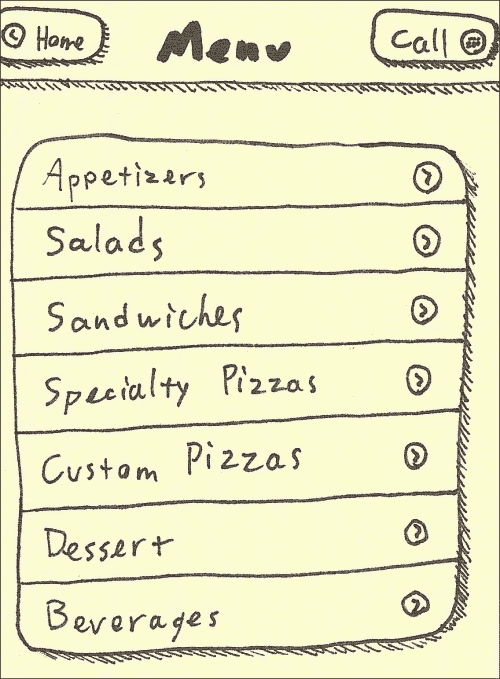 Home Menu Call
Appetizers
Salads
Sandwiches
Specialty Pizzas
Custom Pizzas
Dessert
Beverages